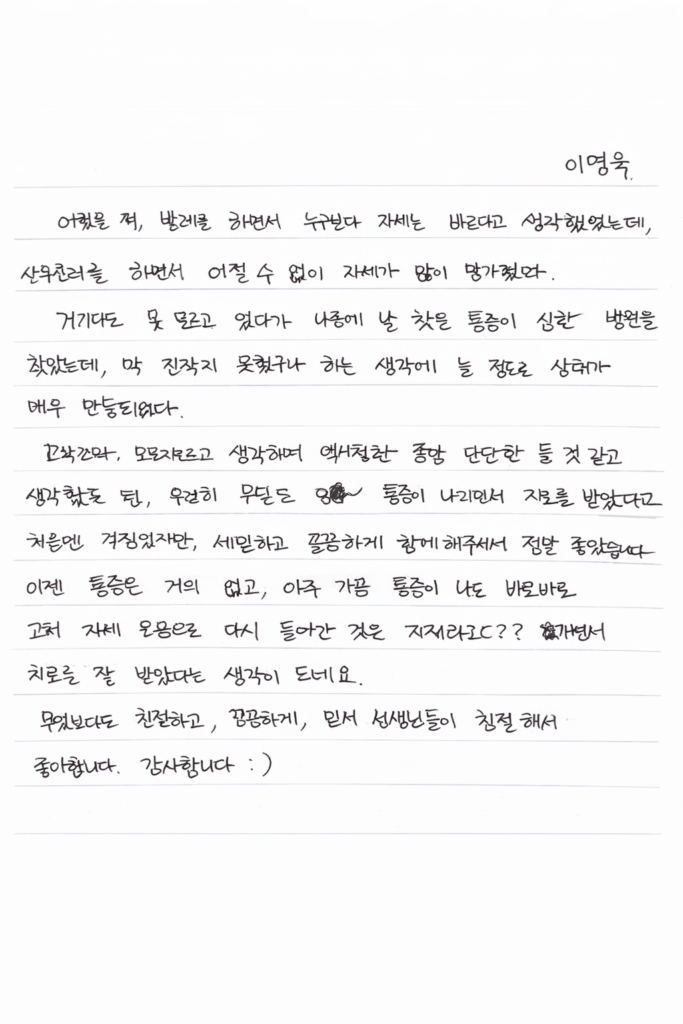 이명욱
어렸을 적, 발레를 하면서 누구보다 자세는 바르다고 생각했었는데,
하면서 어절 수 없이 자세가 많이 망가졌다.
거기다도 못 모르고 있다가 나중에 날 찾은 통증이 심한 병원을
찾았는데, 막 진작지 못했구나 하는 생각에 늘 정도로 상태가
매우
생각하며 종양 단단한 들 것 같고
생각 통증이 나리면서 치료를 받았다고
처음엔 걱정있지만, 세밀하고 꼼꼼하게 함에해주셔서 정말 좋았습니다
이젠 통증은 거의 없고, 아주 가끔 통증이 나도 바로바로
고쳐 자세 다시 들어간 것은
치로를 잘 받았다는 생각이 드네요.
무엇보다도 친절하고, 꼼꼼하게, 믿서 선생님들이 친절해서
좋아합니다. 감사합니다 :)